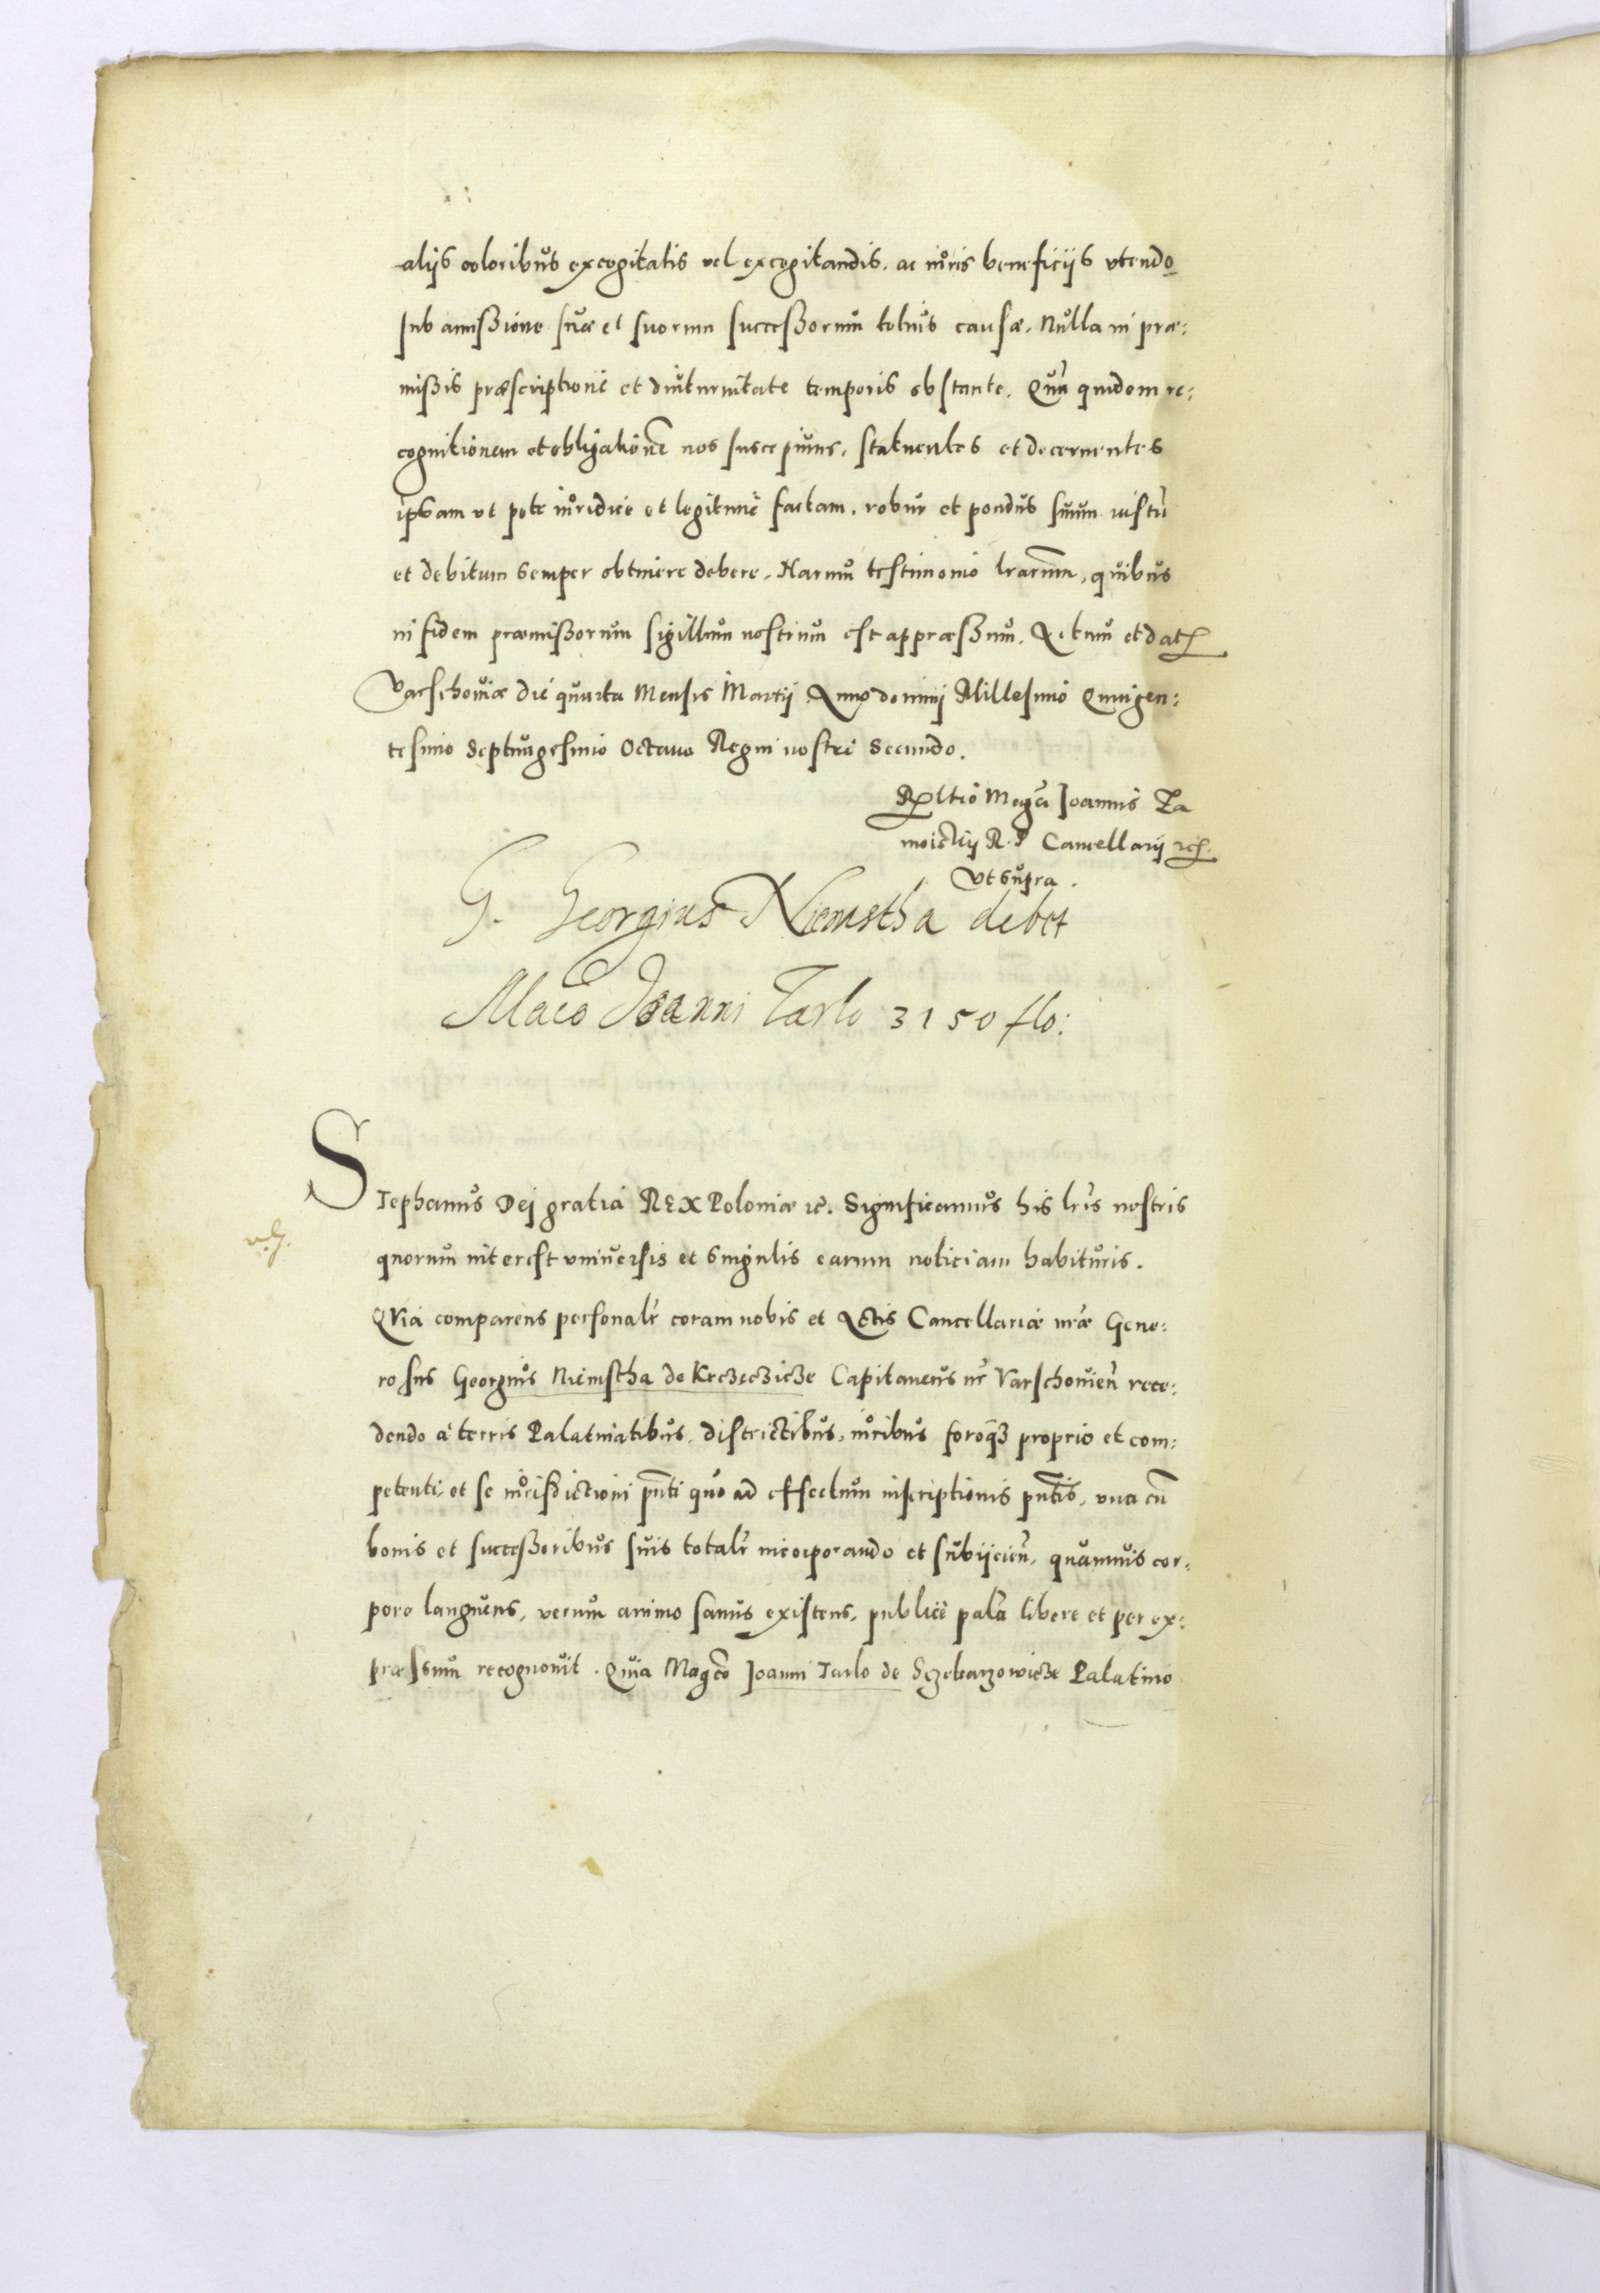 alijs coloribus excogitatis vel excogitandis. ac iuris beneficijs vtendo
sub amißione suæ et suorum succeßorum totius causæ. Nulla in præ:
mißis præscriptione et diuturnitate temporis obstante. Qun̄ quidem re:
cognitionem et obligationē nos suscepimus, statuentes et decernentes
ipsam vt pote iuridice et legitime factam, robur et pondus suum iustū
et debitum semper obtinere debere. Harum testimonio lrarum, quibus
in fidem præmißorum sigillum nostrum est appræßum. Actum et dat
Varschoviæ die quarta Mensis Martij Anno domini Millesimo Quingen:
tesimo Septuagesimo Octauo Regni nostri Secundo.
Rltio Magci Joannis Za
moiskij R. P Cancellarij etc.
vt supra.
G. Georgius Niemstha debet
Maco Joanni Tarlo 3150 flo:
Stephanus Dej gratia REX Poloniæ etc. Significamus his lris nostris
quorum interest vniuersis et singulis earum noticiam habituris.
QVia comparens personalr coram nobis et Actis Cancellariæ nræ Gene:
rosus Georgius Niemstha de Krczeczicze Capitaneus nr Varschouien̄ rece:
dendo a terris Palatinatibus, districtibus, iuribus foroq3 proprio et com:
petenti, et se iurisdictioni pn̄ti quo ad effectum inscriptionis pn̄tis, vna cū
bonis et succeßoribus suis totalr incorporando et subijcien̄, quamuis cor:
pore languens, verum animo sanus existens, publice palā libere et per ex:
præssum recognouit. Quia Magco Joanni Tarlo de Sczebarzowicze Palatino